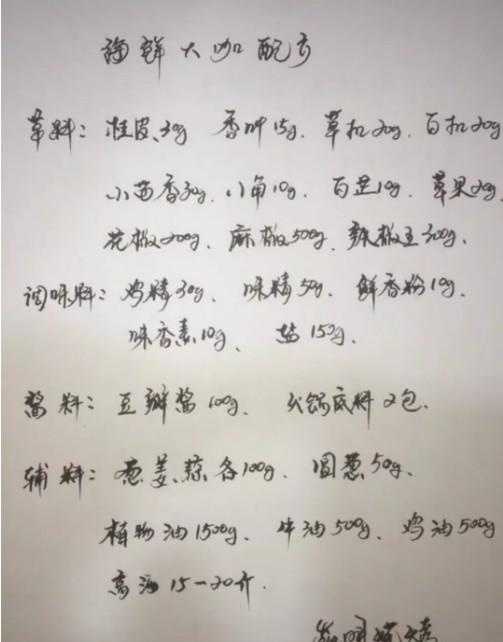 海鲜大咖配方
草料：桂皮30g 香叶15g、草扣20g、白扣20g
小茴香30g、八角10g、白芷10g、草果20g、
花椒200g、麻椒500g、辣椒王300g、
调味料：鸡精30g、味精50g、鲜香粉10g、
味香素10g、盐150g、
酱料：豆瓣酱100g、火锅底料2包.
辅料：葱姜蒜各100g、圆葱50g、
植物油1500g、牛油500g、鸡油500g
高汤15-20斤.